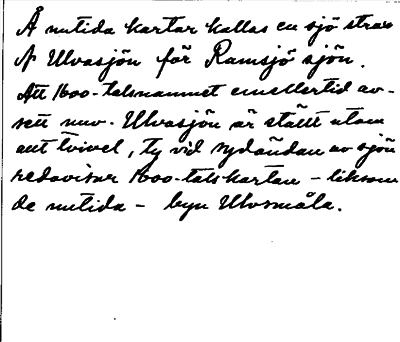 Å nutida kartor kallas en sjö strax
N Ulvasjön för Ramsjö sjön.
Att 1600-talsnamnet emellertid av-
sett nuv. Ulvasjön är ställt utom
allt tvivel, ty vid sydändan av sjön
redovisar 1600-talskartan - liksom
de nutida - byn Ulvsmåla.